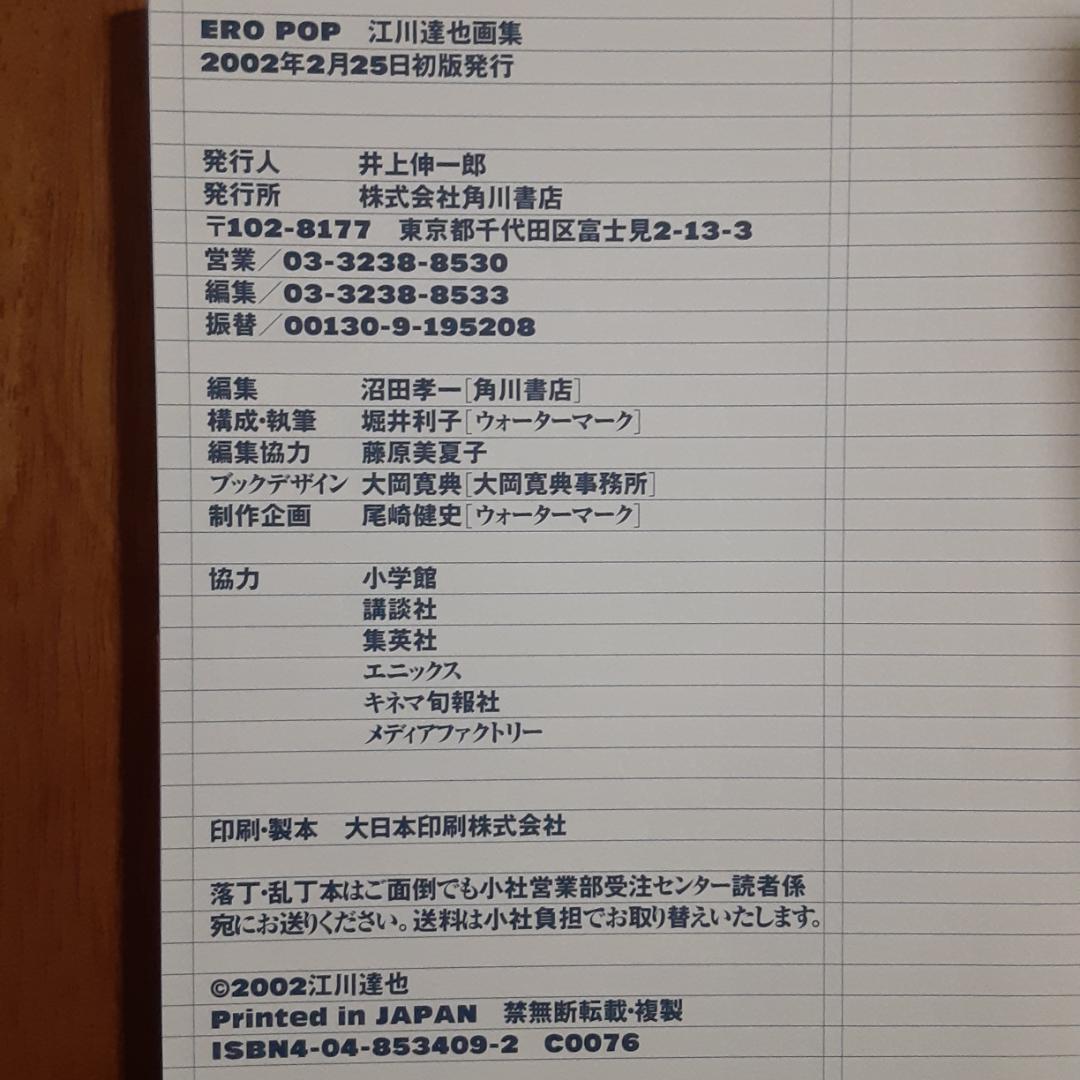 ERO POP 江川達也画集
2002年2月25日初版発行
発行人 井上伸一郎
発行所 株式会社角川書店
〒102-8177 東京都千代田区富士見2-13-3
営業／03-3238-8530
編集／03-3238-8533
振替／00130-9-195208
編集 沼田孝一[角川書店]
構成・執筆 堀井利子[ウォーターマーク]
編集協力 藤原美夏子
ブックデザイン 大岡寛典[大岡寛典事務所]
制作企画 尾崎健史[ウォーターマーク]
協力 小学館
講談社
集英社
エニックス
キネマ旬報社
メディアファクトリー
印刷・製本 大日本印刷株式会社
落丁・乱丁本はご面倒でも小社営業部受注センター読者係
宛にお送りください。送料は小社負担でお取り替えいたします。
©2002江川達也
Printed in JAPAN 禁無断転載・複製
ISBN4-04-853409-2 C0076